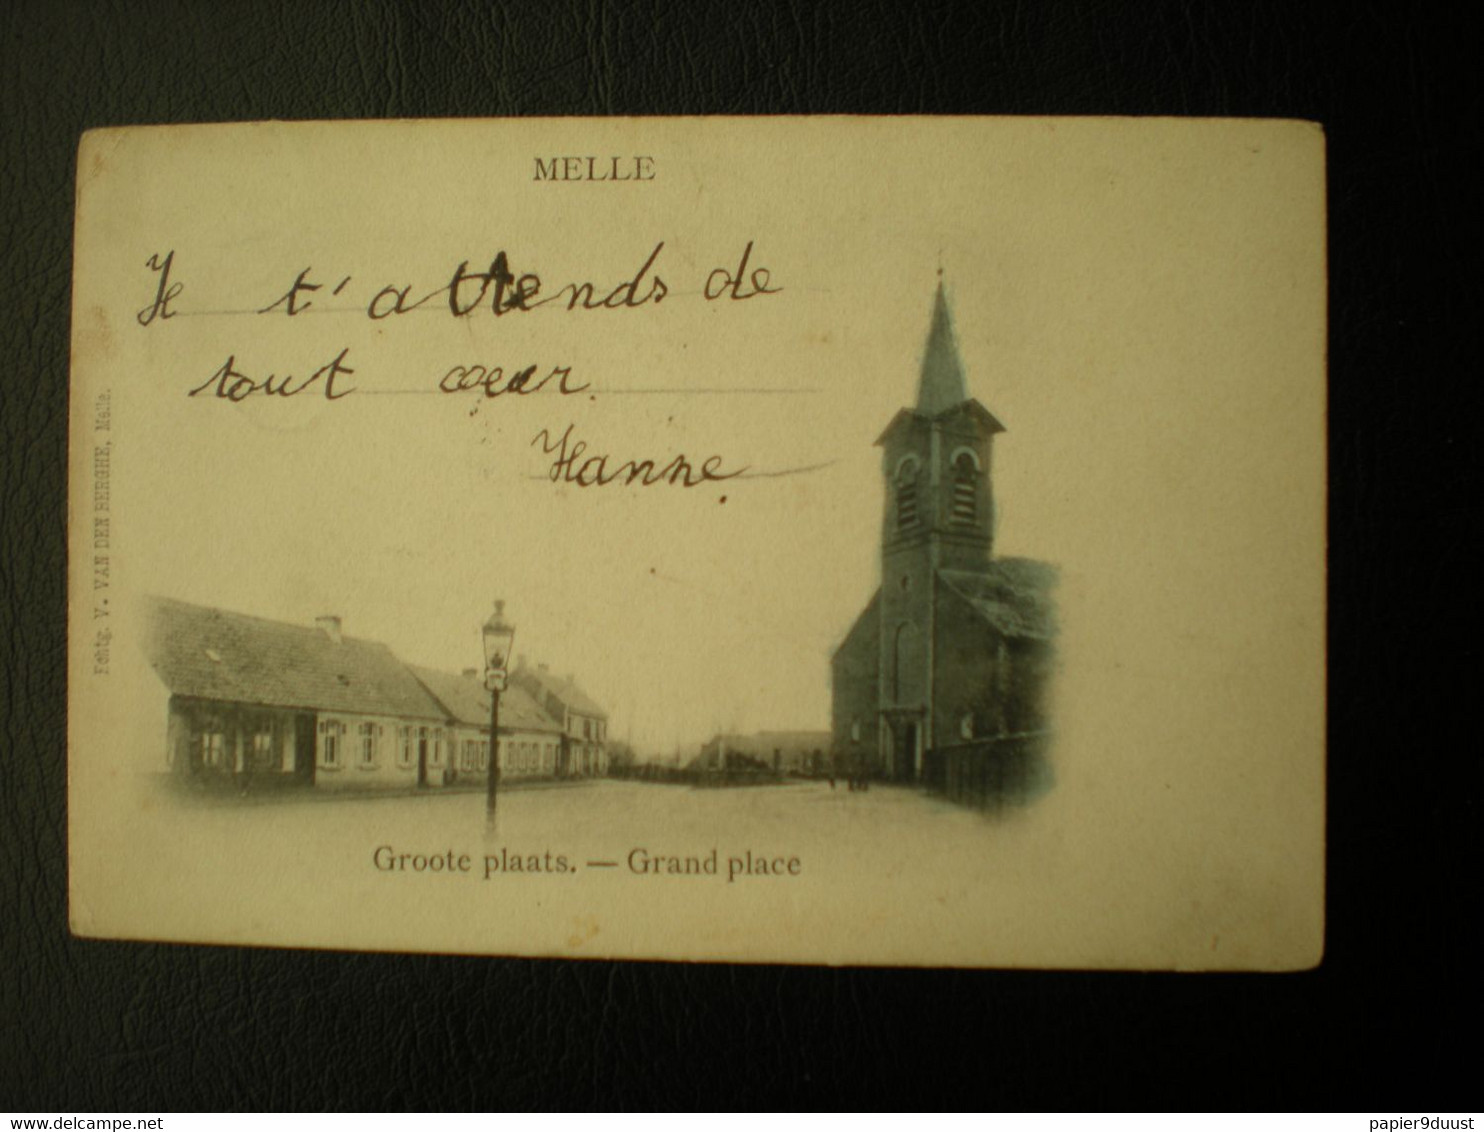 MELLE
Je t'attends de
tout cœur.
Hanne.
Echtg. V. VAN DEN BERGHE, Melle.
Groote plaats. — Grand place
delcampe.net
papier9duust